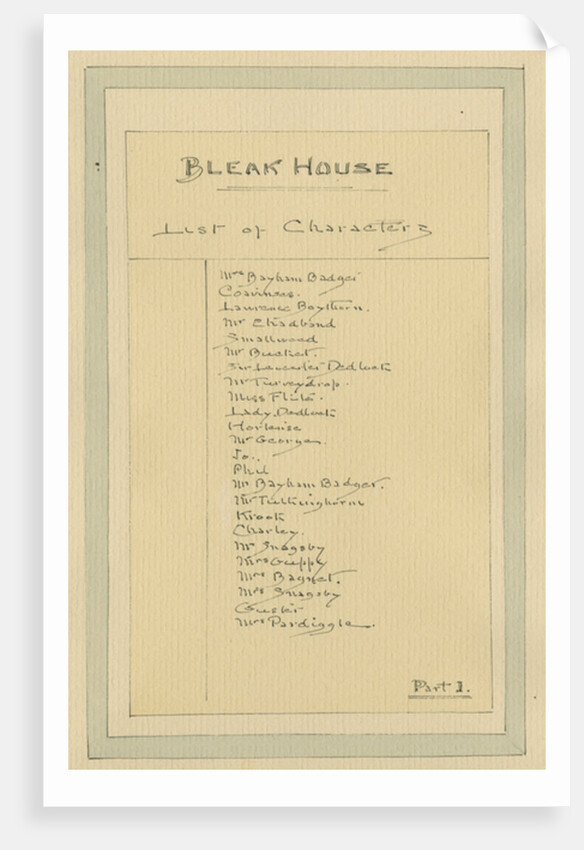 BLEAK HOUSE
List of Characters
Mrs Bayham Badger
Coavinses.
Lawrence Boythorn.
Mr Chadband
Smallweed
Mr Bucket.
Sir Leicester Dedlock
Mr Turveydrop.
Miss Flite.
Lady Dedlock
Hortense
Mr George.
Jo..
Phil
Mr Bayham Badger.
Mr Tulkinghorn
Krook
Charley.
Mr Snagsby
Mrs Guppy
Mrs Bagnet.
Mrs Snagsby
Guster
Mrs Pardiggle.
Part 1.